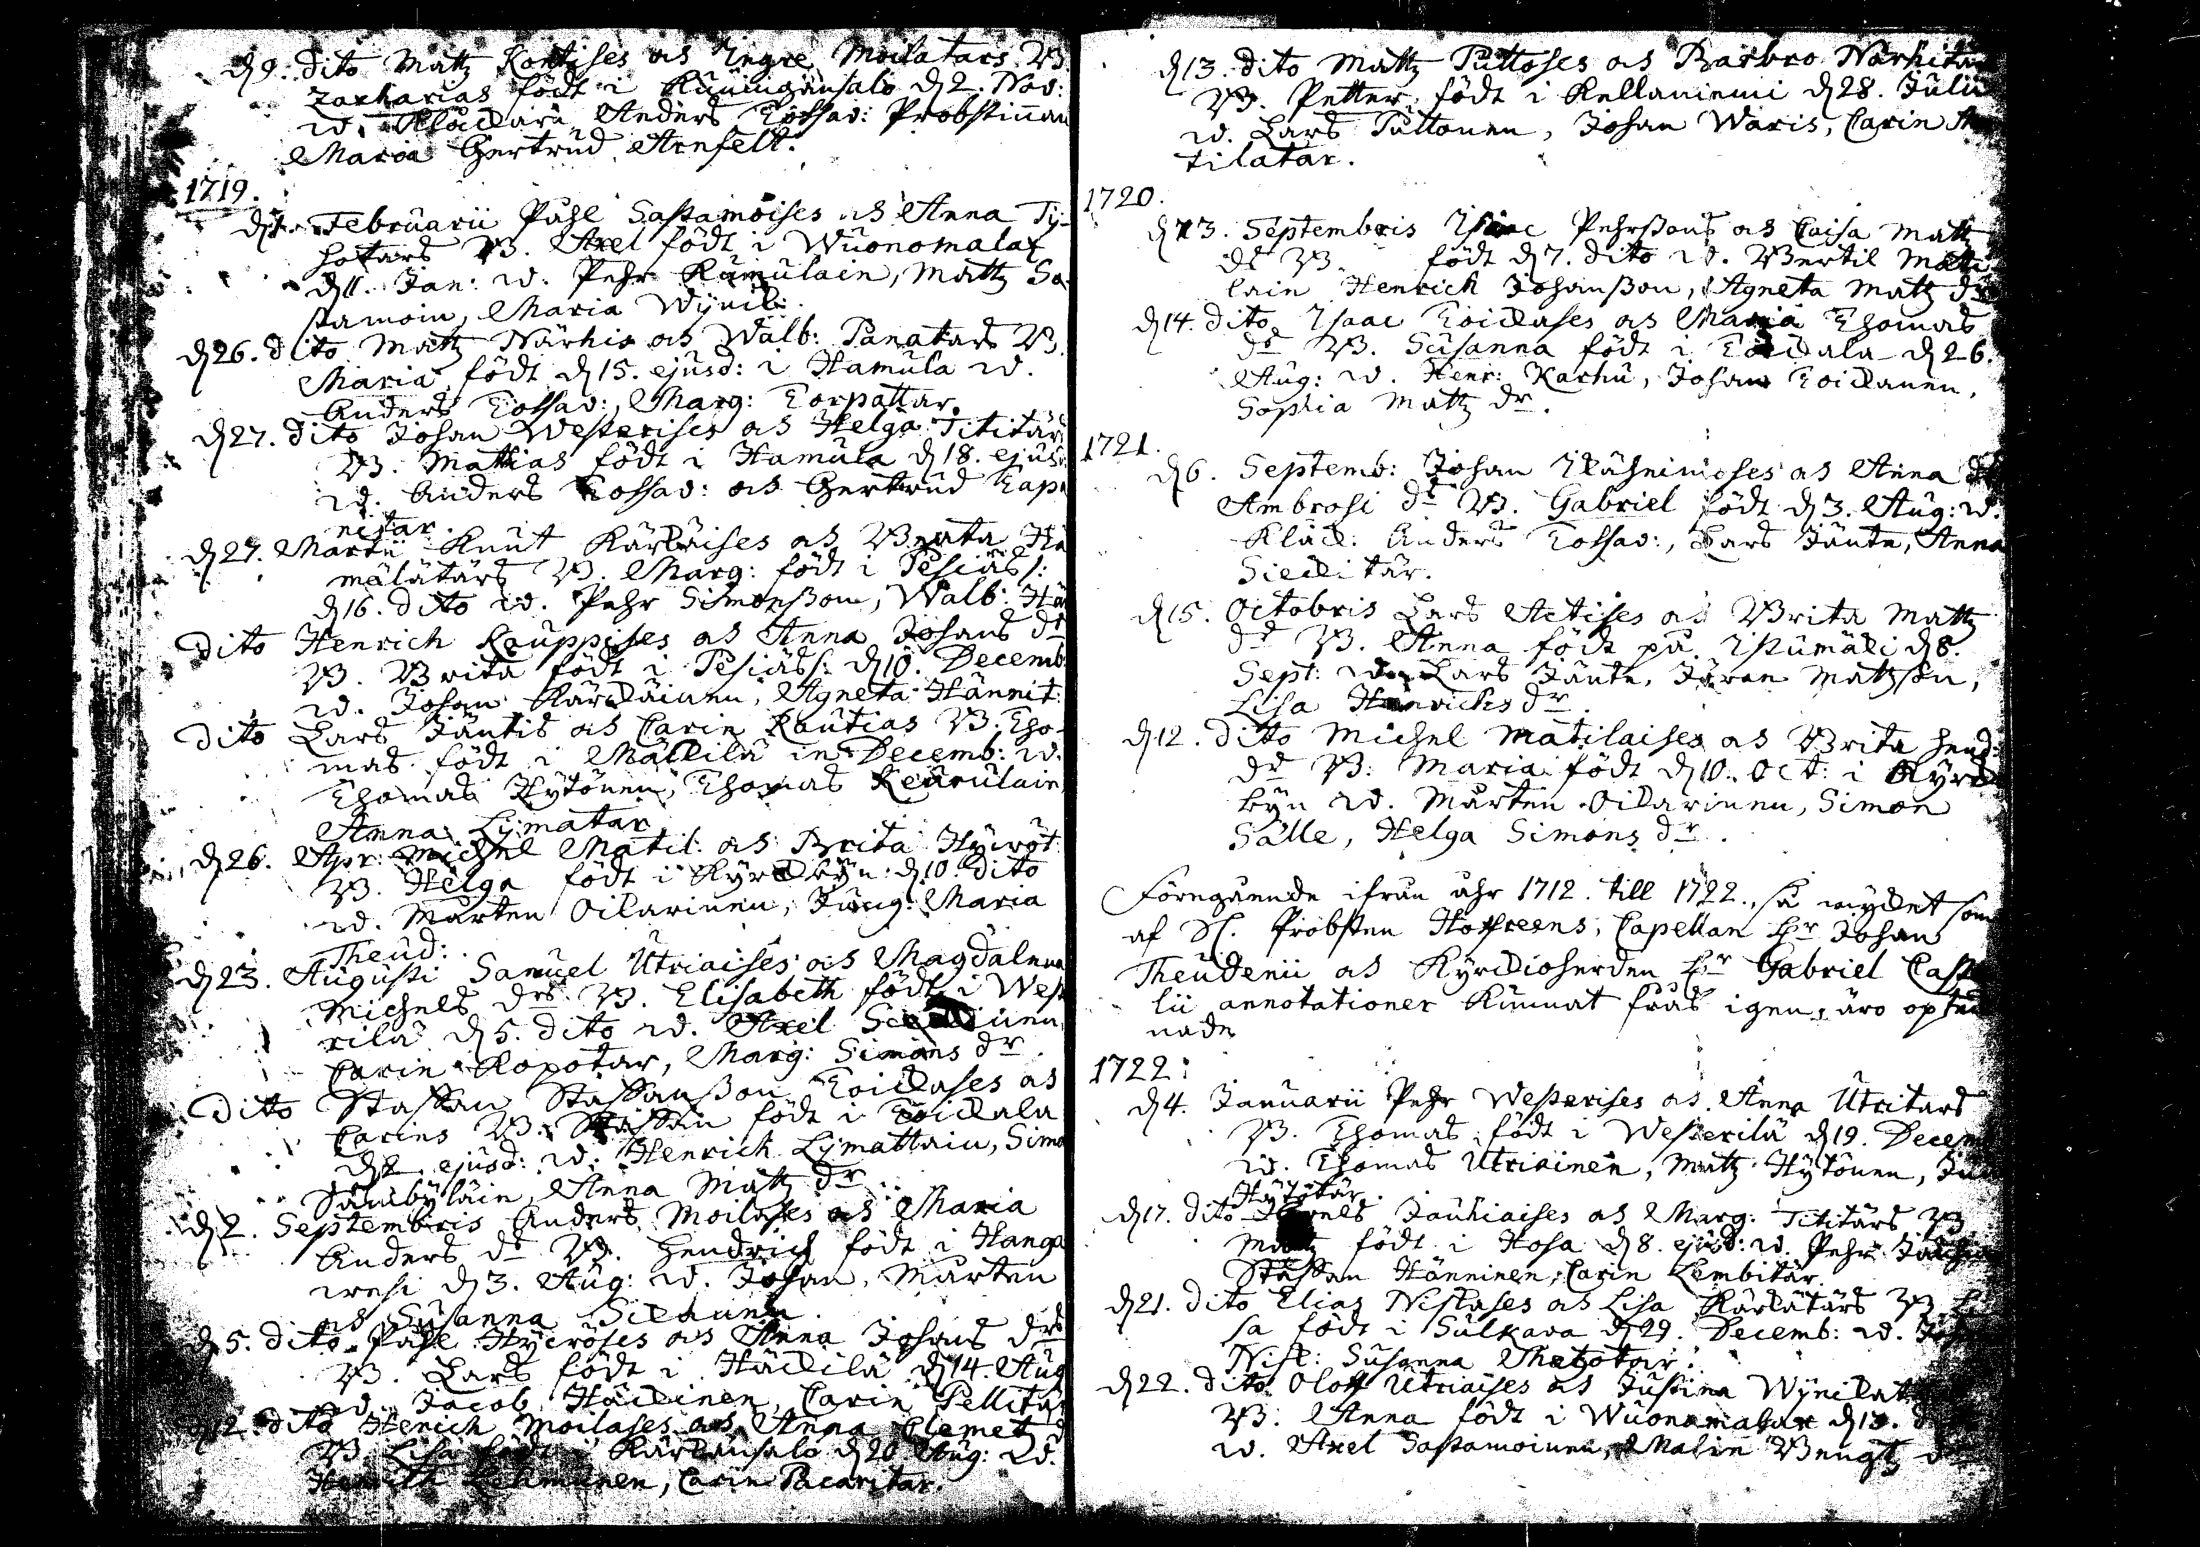 d 9. dito Matz Kontises as Ingre Moilatars B.
Zacharias födt i Kuningansalo d 2. Nov:
w. Klåckarn Anders Tolsad: Probstinnan
Maria Gertrud Arnfelt.
1719.
Februarii Påhl Sastamoises as Anna Ty-
hotars B. Axel födt i Wuonomalax
d 11. Jan: w. Pehr Rumulain, Matz Sa-
stamoin, Maria Wynil:
d 26. dito Matz Närhis as Walb: Panatars B.
Maria födt d 15. ejusd: i Hamula w.
Anders Tolsad:, Marg: Torpattar.
d 27. dito Johan Westerises as Helga Tititärs
B. Mathias födt i Hamula d 18. ejusd:
w. Anders Tolsad: as Gertrud
nistar.
d 27. Martii Knut Kärkäises as Beata Hä
mälätärs B. Marg: födt i Pesiäs:
d 16. dito w. Pehr Simonsson, Walb:
dito Henrich Kauppises as Anna Johans dr
B. Brita födt i Pesiäs: d 10. Decemb:
w. Johan Kärckäinen, Agneta Hännit:
dito Lars Jäntis as Carin Kautias B. Tho-
mas födt i Mäckilä in Decemb: w.
Thomas Hytönen, Thomas Keurulain,
Anna Lymatar
d 26. Apr: Michel Matil: as Brita Hywöt:
B. Helga födt i Kyrckbyn d 10. dito
w. Mårten Oilarinen, Jung: Maria
Theud:
d 23. Augusti Samuel Utriaises as Magdalena
Michels drs B. Elisabeth födt i West
rilä d 5. dito w. Axel
Carin Kopotar, Marg: Simons dr.
dito Staffan Staffansson Toickases as
Carins B. Staffan födt i Toickala
ejusd: w. Henrich Lymattain, Simo
Sambyläin, Anna Matz dr
d 2. Septembris Anders Moilases as Maria
Anders dr B. Hendrich födt i Hanga
wesi d 3. Aug: w. Johan, Mårten
as Susanna Sickunen.
d 5. dito Påhl Hycröses as Anna Johans drs
B. Lars födt i Häckilä d 14. Aug
w. Jacob Häckinen, Carin Pellitär
d 12. dito Henrich Moilases as Anna Clemetz
B. Lisa födt i Kärkänsalo d 20 Aug: w.
Carin Pacaritar.
d 13. dito Matz Puttoses as Barbro Närhitars
B. Petter födt i Kellaniemi d 28. Julii
w. Lars Puttonen, Johan Waris, Carin
tilatar.
1720.
d 13. Septembris Isaac Pehrssons as Caisa Matz
dr B. födt d 7. dito w. Bertil Mati
lain Henrich Johansson, Agneta Matz dr
d 14. dito Isaac Toickases as Maria Thomas
dr B. Susanna födt i Toickala d 26.
Aug: w. Henr: Karhu, Johan Toickanen,
Sophia Matz dr.
1721.
d 6. Septemb: Johan Wähnimoses as Anna
Ambrosi dr B. Gabriel födt d 3. Aug: w.
Klåck: Anders Tolsad:, Lars Jänte, Anna
Siecki tär.
d 15. Octobris Lars Actises as Brita Matz
dr B. Anna födt på Istumäki d 8.
Sept: w. Lars Jänte, Jöran Matzson,
Lisa Henrichs dr.
d 12. dito Michel Matilaises as Brita Hend:
dr B: Maria födt d 10. Oct: i Kyrck
byn w. Mårten Oilarinen, Simon
Sälle, Helga Simons dr.
Förngåennde ifrån åhr 1712. till 1722., så myckt som
af Sl. Probsten Hoffreens, Capellan Hr Johan
Theudenii as Kyrckioherden Hr Gabriel Caste
lii annotationer kunnat fås igen, äro opteck
nade
1722:
d 4. Januarii Pehr Westerises as Anna Utritars
B. Thomas födt i Westerilä d 19. Decemb
w. Thomas Utriainen, Matz Hytönen,
Hytötär.
d 17. dito Jauhiaises as Marg: Tititärs B
Matz födt i Hosa d 8. ejusd: w. Pehr
Staffan Hänninen, Carin Lembitär.
d 21. dito Elias Niskases as Lisa Kärkätärs B
sa födt i Sulkava d 29. Decemb: w.
Nisk: Susanna
d 22. dito Oloff Utriaises as Justina
B. Anna födt i Wuonamalax d 10.
w. Axel Sastamoinen, Malin Bengtz